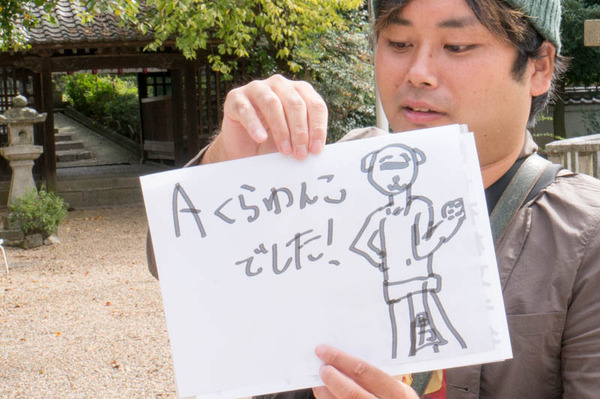 Aくらわんこ
でした!